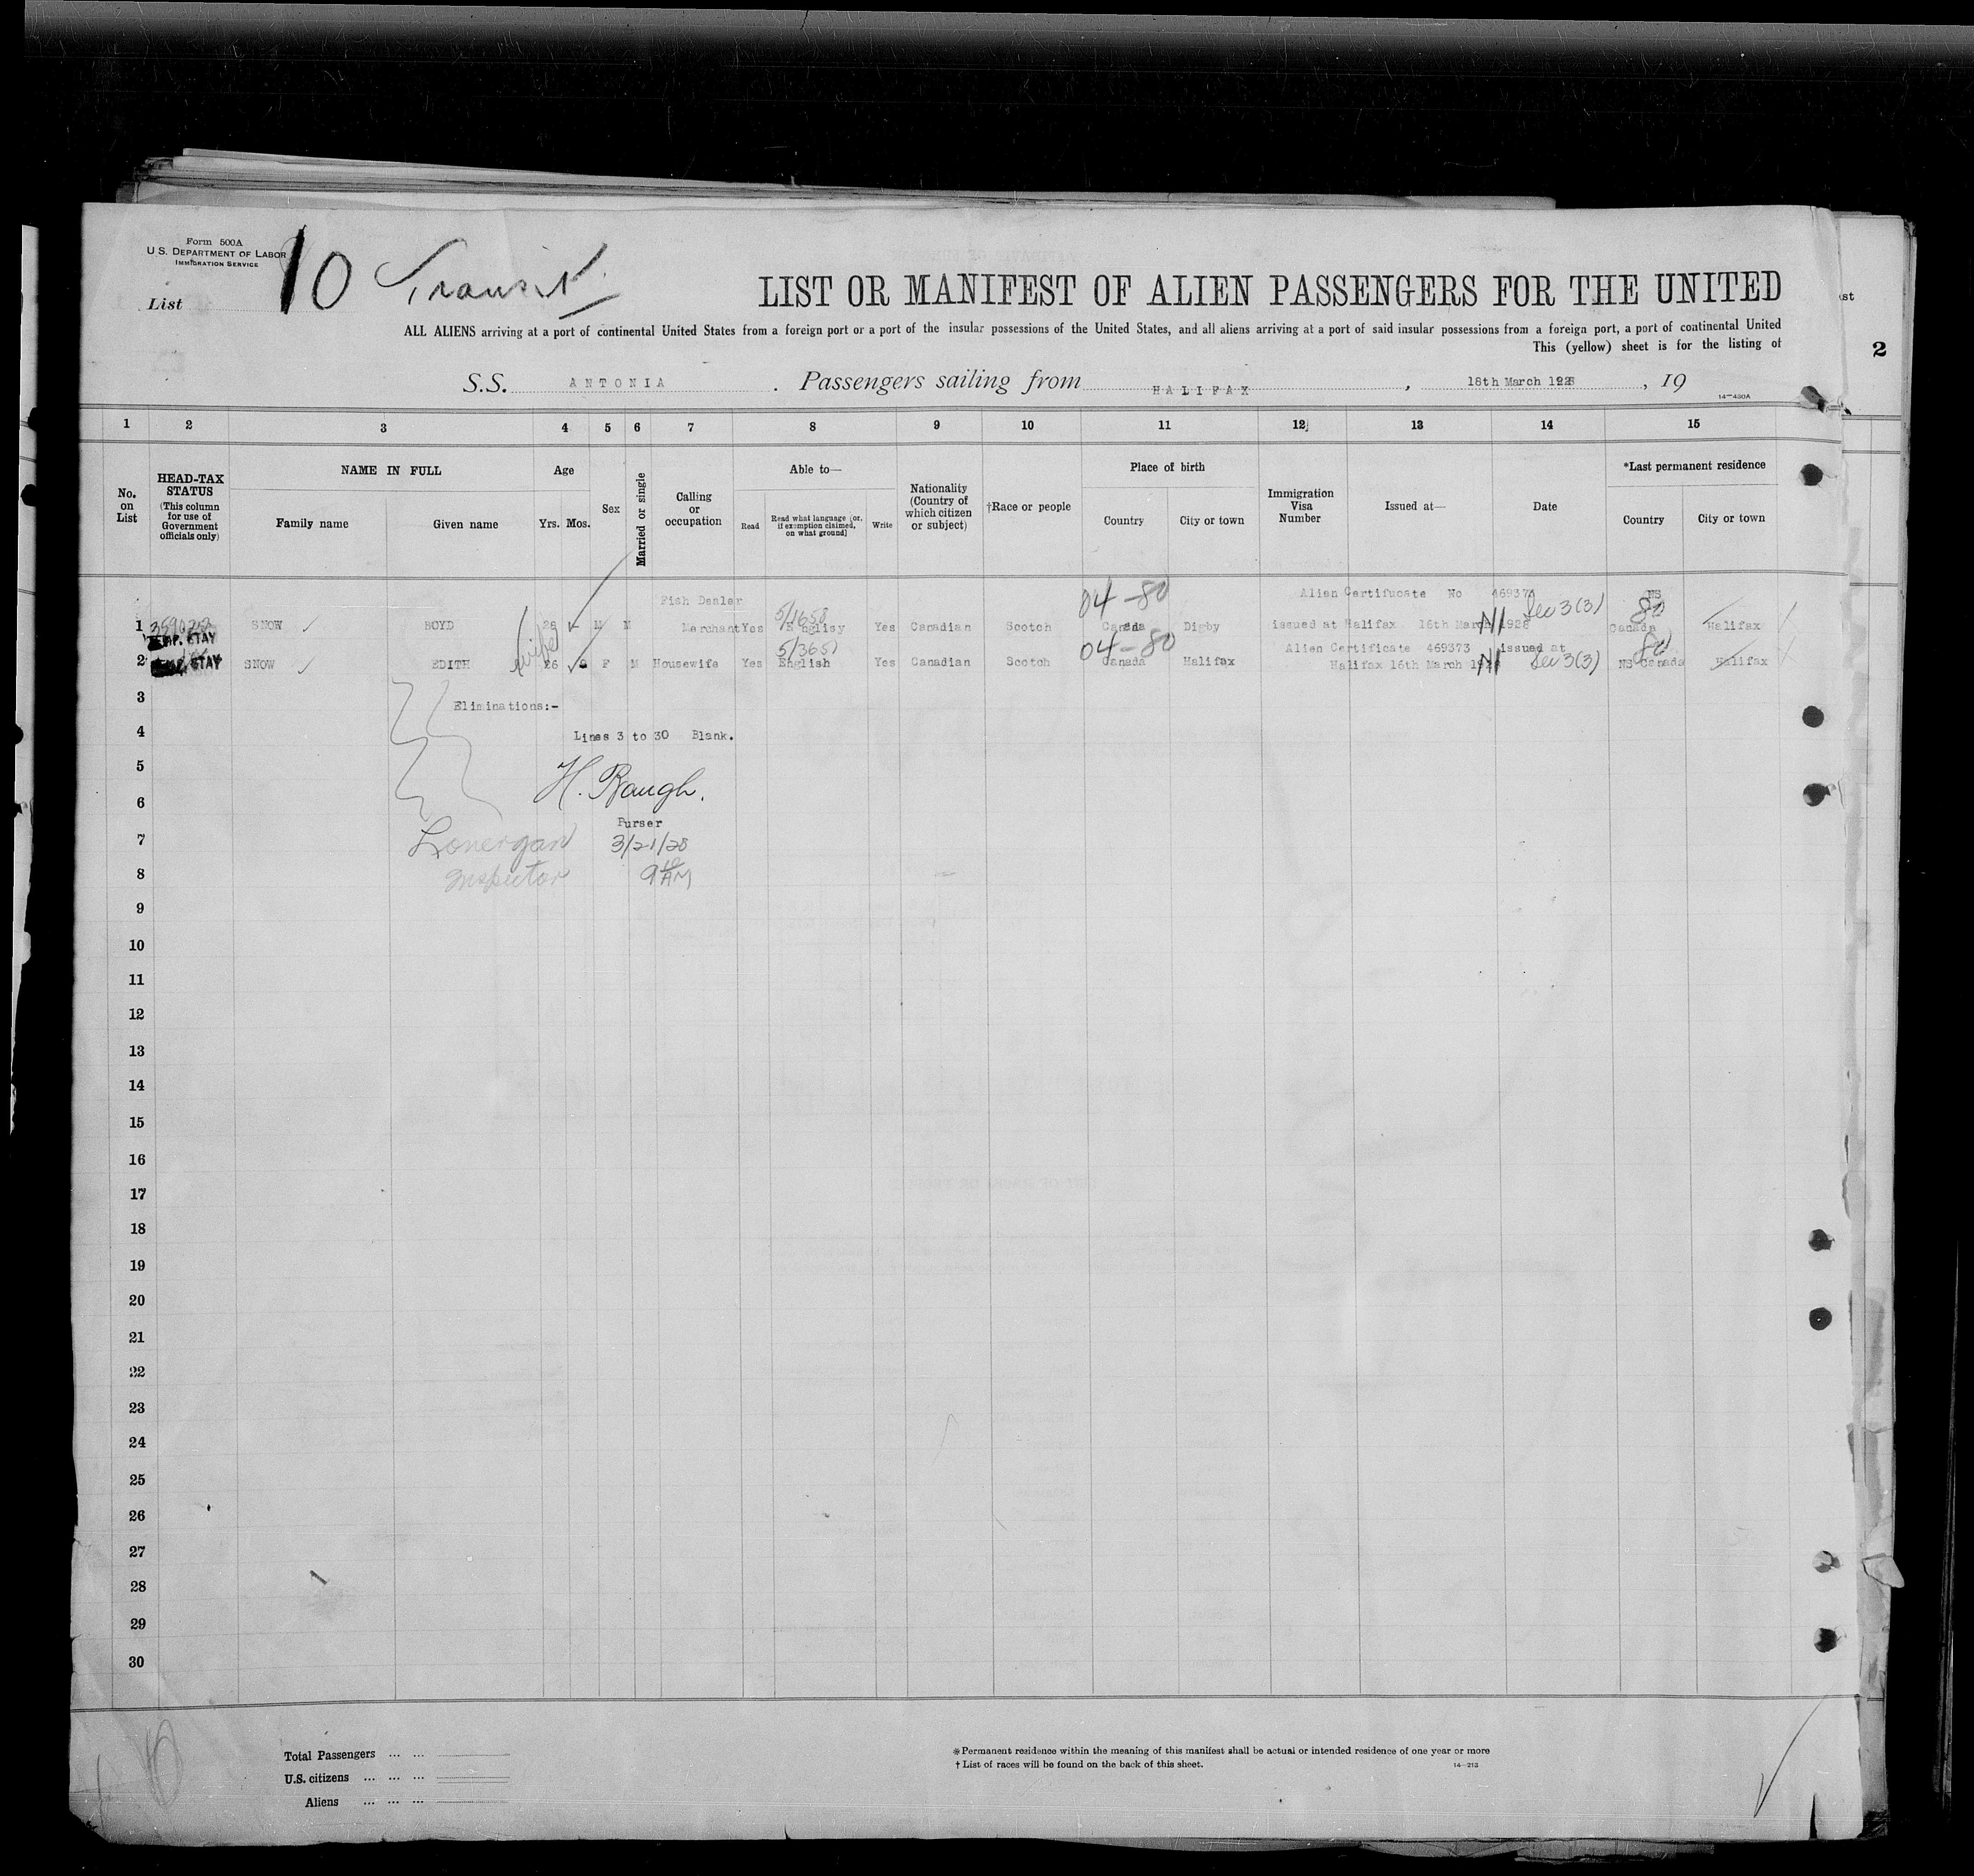 Form 500A
U.S. DEPARTMENT OF LABOR
IMMIGRATION SERVICE
List 10 Transit
LIST OR MANIFEST OF ALIEN PASSENGERS FOR THE UNITED
ALL ALIENS arriving at a port of continental United States from a foreign port or a port of the insular possessions of the United States, and all aliens arriving at a port of said insular possessions from a foreign port, a port of continental United
This (yellow) sheet is for the listing of
S.S. ANTONIA . Passengers sailing from HALIFAX , 18th March 1928 , 19
14—430A
st
2
1 2 3 4 5 6 7 8 9 10 11 12 13 14 15
No. on List
HEAD-TAX STATUS (This column for use of Government officials only)
NAME IN FULL
Family name Given name
Age
Yrs. Mos.
Sex
Married or single
Calling or occupation
Able to—
Read
Read what language [or, if exemption claimed, on what ground]
Write
Nationality (Country of which citizen or subject)
†Race or people
Place of birth
Country City or town
Immigration Visa Number
Issued at—
Date
*Last permanent residence
Country City or town
Fish Dealer 5/1658 04-80 Alien Certifucate No 46937 NS
1 TEMP. STAY SNOW BOYD 28 M M Merchant Yes Englisy Yes Canadian Scotch Canada Digby issued at Halifax 16th March 1928 NI Sec 3(3) 80 Canada Halifax
wife 5/3651 04-80 Alien Certificate 469373 issued at 80
2 TEMP. STAY SNOW EDITH 26 F M Housewife Yes English Yes Canadian Scotch Canada Halifax Halifax 16th March NI Sec 3(3) NS Canada Halifax
3 Eliminations:-
4 Lines 3 to 30 Blank.
5
6 H. Baugh.
Purser
7 Lonergan 3/21/28
8 Inspector 9 10 AM
9
10
11
12
13
14
15
16
17
18
19
20
21
22
23
24
25
26
27
28
29
30
Total Passengers ... ...
U.S. citizens ... ... ...
Aliens ... ... ...
*Permanent residence within the meaning of this manifest shall be actual or intended residence of one year or more
† List of races will be found on the back of this sheet. 14—213